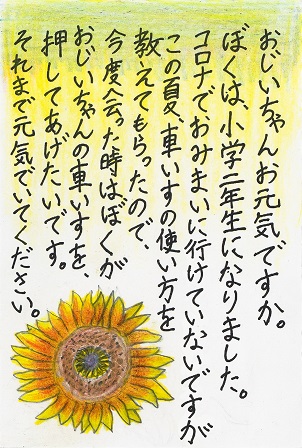 おじいちゃんお元気ですか。
ぼくは、小学二年生になりました。
コロナでおみまいに行けていないですが
この夏、車いすの使い方を
教えてもらったので、
今度会った時はぼくが
おじいちゃんの車いすを、
押してあげたいです。
それまで元気でいてください。